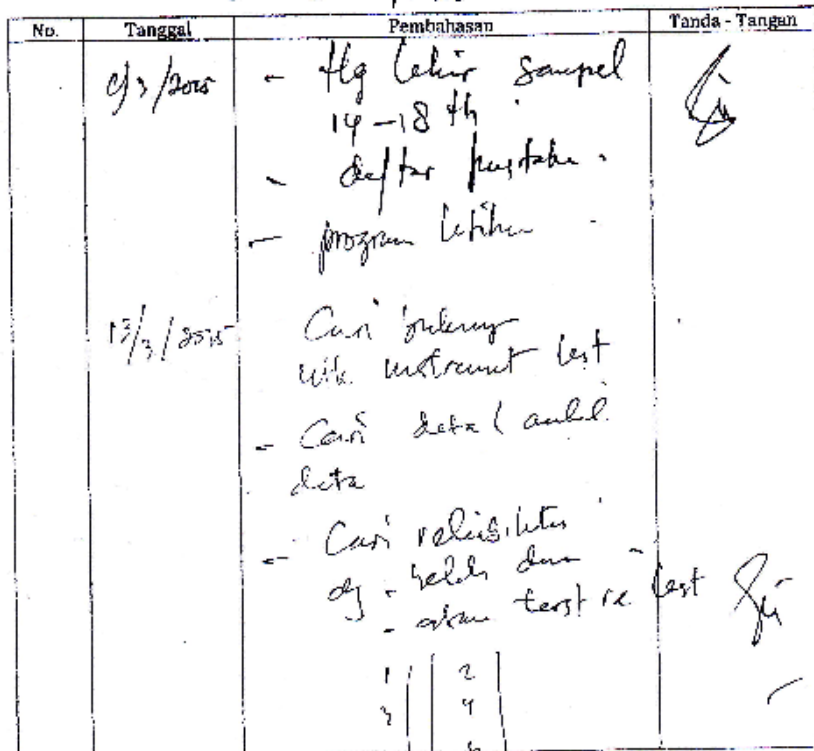 No. Tanggal Pembahasan Tanda - Tangan
9/3/2015 - tlg lahir sampel
14-18 th.
- daftar pustaka.
- program latihan
13/3/2015 Cari
utk. instrument test
- Cari data (
data
- Cari reliabilitas
dg - belah dua
- test re test
1 2
3 4
6